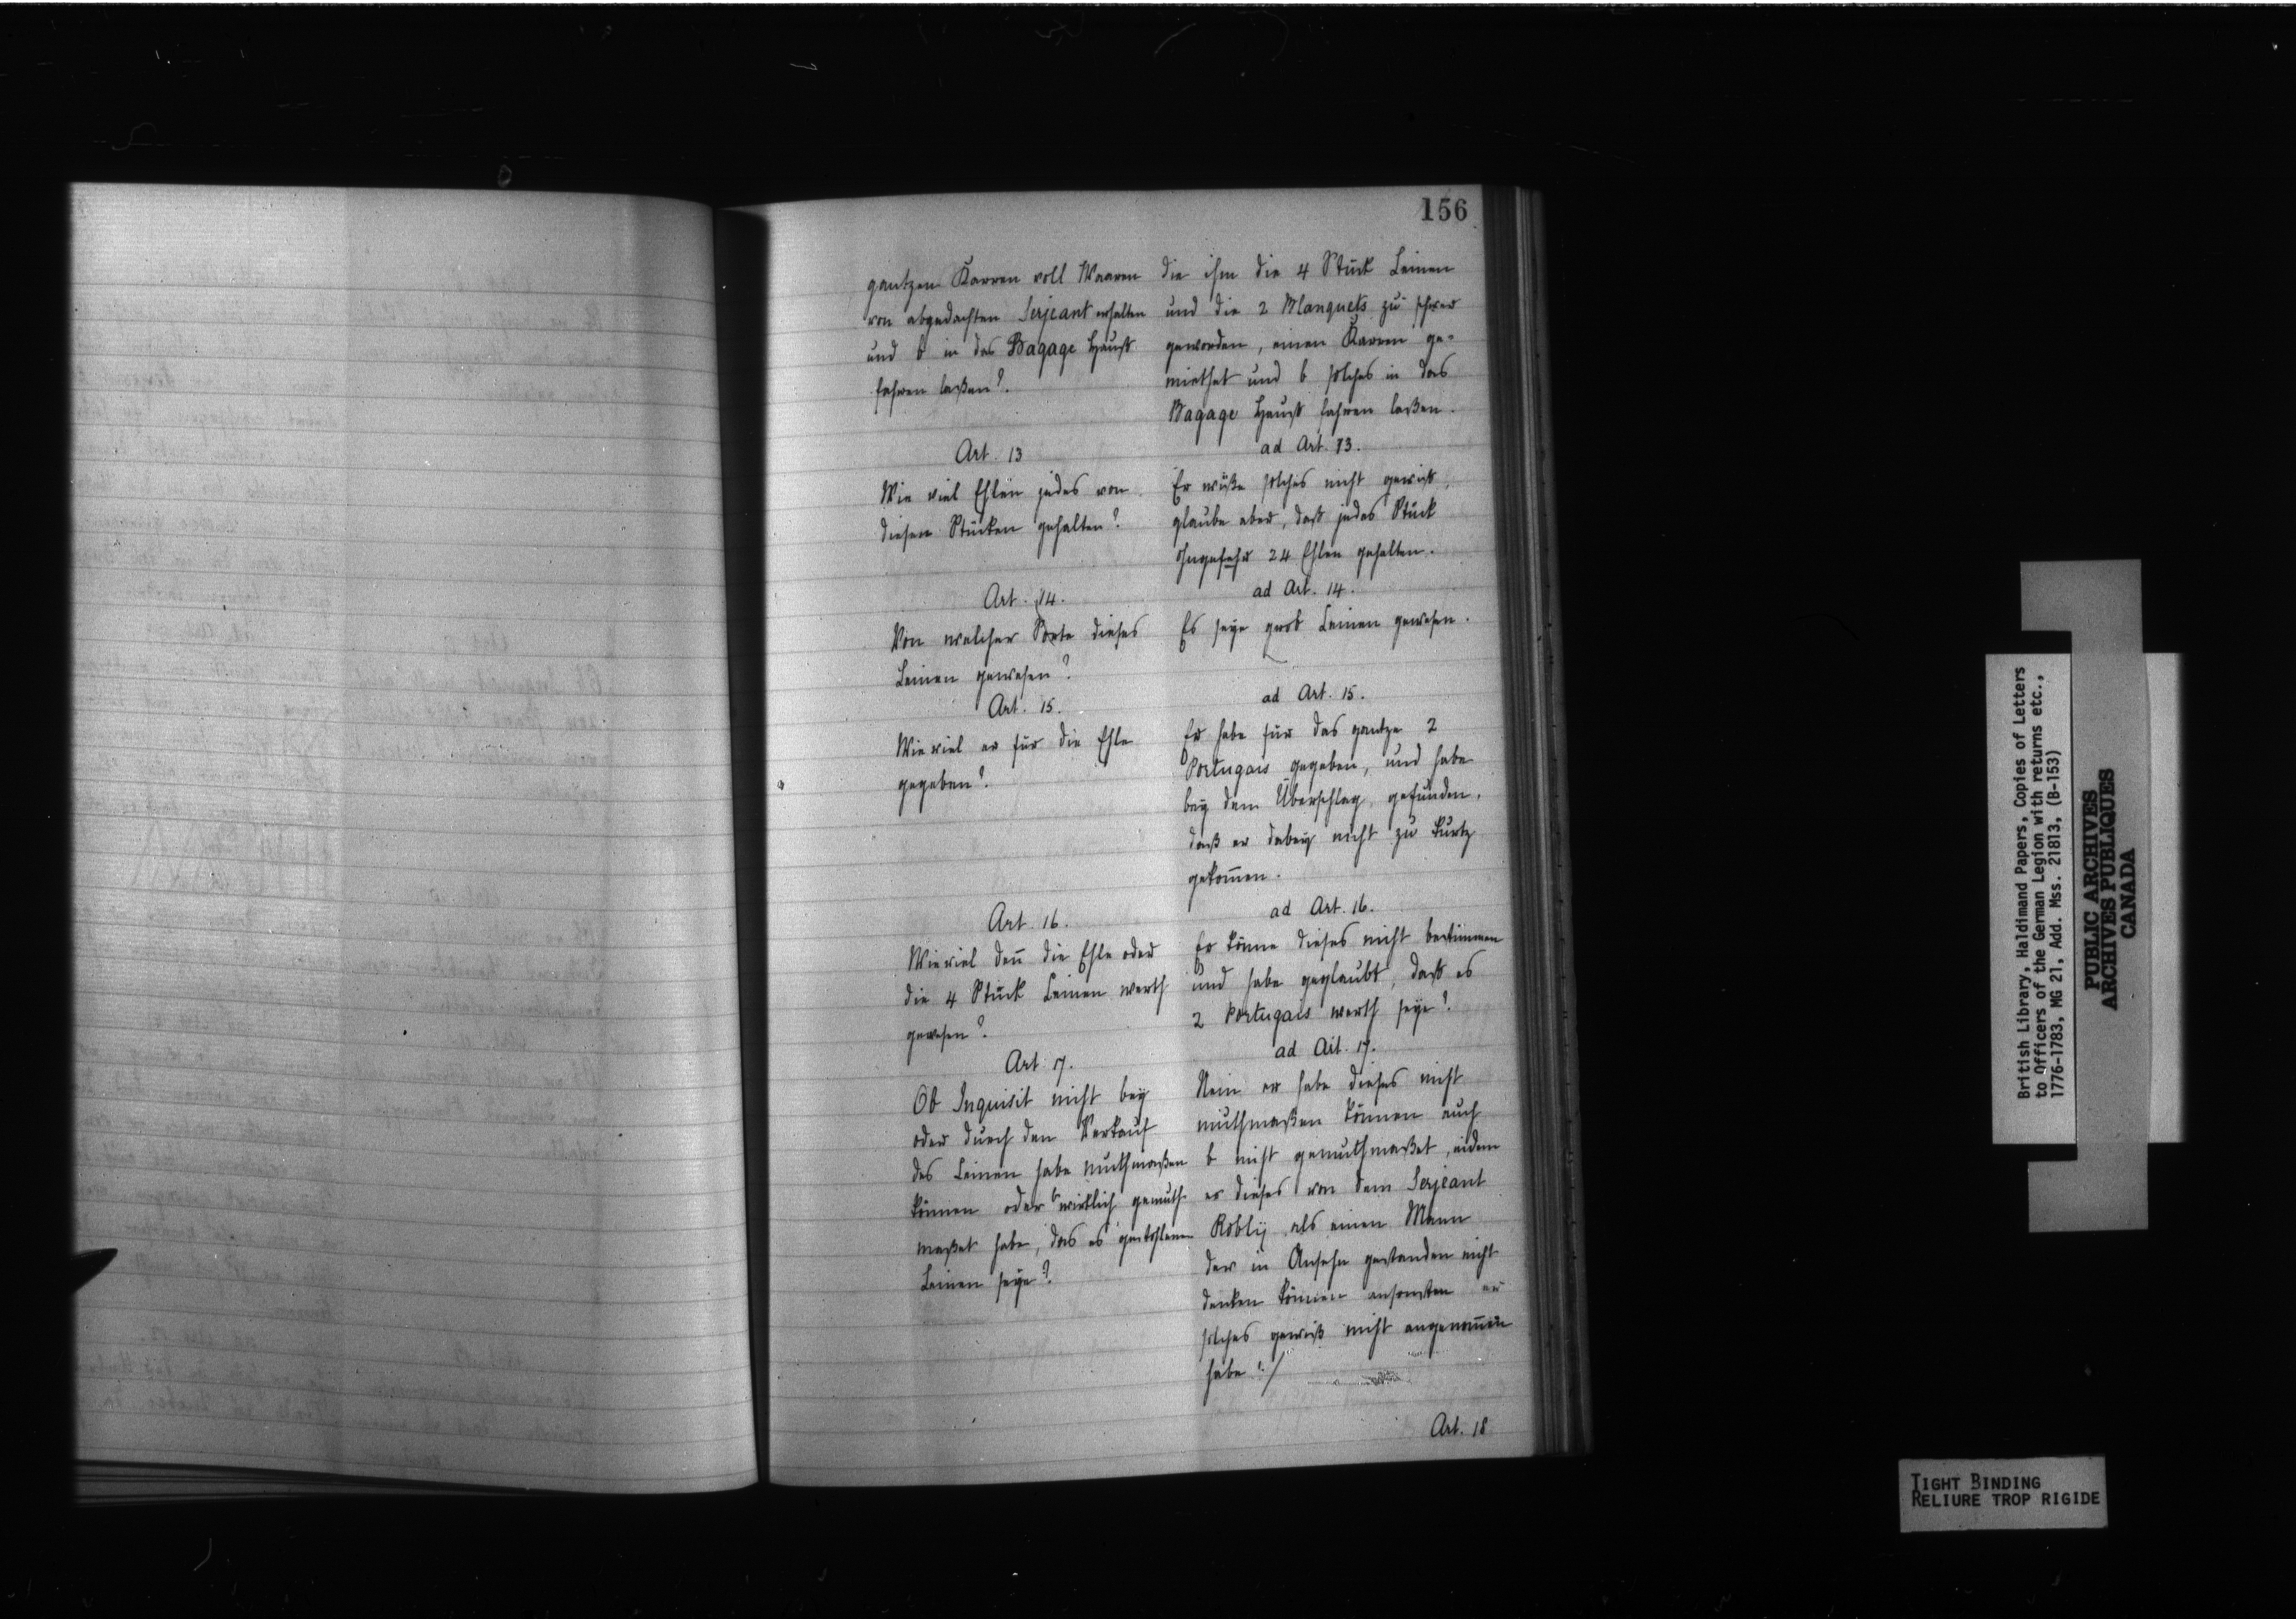 156
gantzen Karren voll Waaren
von abgedachten Serjeant erhalten
und b in das Bagage Hauß
fahren laßen?
Art. 13
Wie viel Ehlen jedes von
diesen Stücken gehalten?
Art. 14.
Von welcher Sorte dieses
Leinen gewesen?
Art. 15.
Wie viel er für die Ehle
gegeben?
Art. 16.
Wie viel den̄ die Ehle oder
die 4 Stück Leinen werth
gewesen?
Art 17.
Ob Inquisit nicht bey
oder durch den Verkauf
des Leinen habe muthmaßen
können oder b wirklich gemuth-
maßet habe, das es gestohlenen
Leinen seye?
die ihm die 4 Stück Leinen
und die 2 Blanquets zu schwer
geworden, einen Karren ge-
miethet und b solches in das
Bagage Hauß fahren laßen.
ad Art. 13.
Er wüße solches nicht gewiß,
glaube aber, daß jedes Stück
ohngefehr 24 Ehlen gehalten.
ad Art. 14.
Es seye grob Leinen gewesen.
ad Art. 15.
Er habe für das gantze 2
Portugais gegeben, und habe
bey dem Überschlag gefunden,
daß er dabey nicht zu kurtz
gekom̄en.
ad Art. 16.
Er könne dieses nicht bestimmen
und habe geglaubt, daß es
2 Portugais werth seye?
ad Art. 17.
Nein er habe dieses nicht
muthmaßen können auch
b nicht gemuthmaßet, indem
er dieses von dem Serjeant
Robly als einen Mann
der in Ansehn gestanden nicht
denken können ansonsten er
solches gewiß nicht angenom̄en
habe :/
Art. 18
British Library, Haldimand Papers, Copies of Letters
to Officers of the German Legion with returns etc.,
1776-1783, MG 21, Add. Mss. 21813, (B-153)
PUBLIC ARCHIVES
ARCHIVES PUBLIQUES
CANADA
TIGHT BINDING
RELIURE TROP RIGIDE